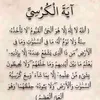 آيَةُ الْكُرْسِيِّ
اللَّهُ لَا إِلَٰهَ إِلَّا هُوَ الْحَيُّ الْقَيُّومُ لَا تَأْخُذُهُ
سِنَةٌ وَلَا نَوْمٌ لَهُ مَا فِي السَّمَاوَاتِ وَمَا فِي
الْأَرْضِ مَنْ ذَا الَّذِي يَشْفَعُ عِنْدَهُ إِلَّا بِإِذْنِهِ
يَعْلَمُ مَا بَيْنَ أَيْدِيهِمْ وَمَا خَلْفَهُمْ وَلَا يُحِيطُونَ
بِشَيْءٍ مِنْ عِلْمِهِ إِلَّا بِمَا شَاءَ وَسِعَ كُرْسِيُّهُ
السَّمَاوَاتِ وَالْأَرْضَ وَلَا يَئُودُهُ حِفْظُهُمَا وَهُوَ
الْعَلِيُّ الْعَظِيمُ